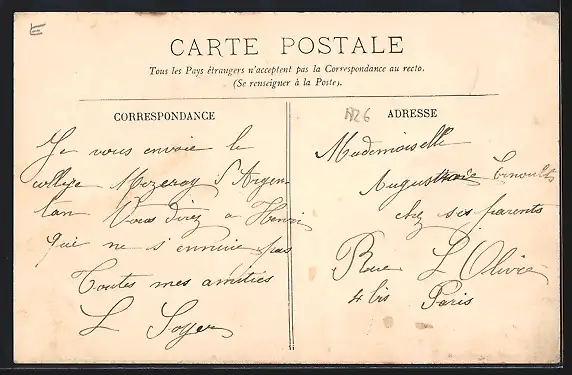 CARTE POSTALE
Tous les Pays étrangers n'acceptent pas la Correspondance au recto.
(Se renseigner à la Poste).
CORRESPONDANCE
Je vous envoie le
collège Mezeray d'Argen
tan Vous direz a Henri
que ne s'ennuie pas
Toutes mes amitiés
L Soyer
ADRESSE
Mademoiselle
chez ses parents
Rue L'Olivier
4 bis Paris